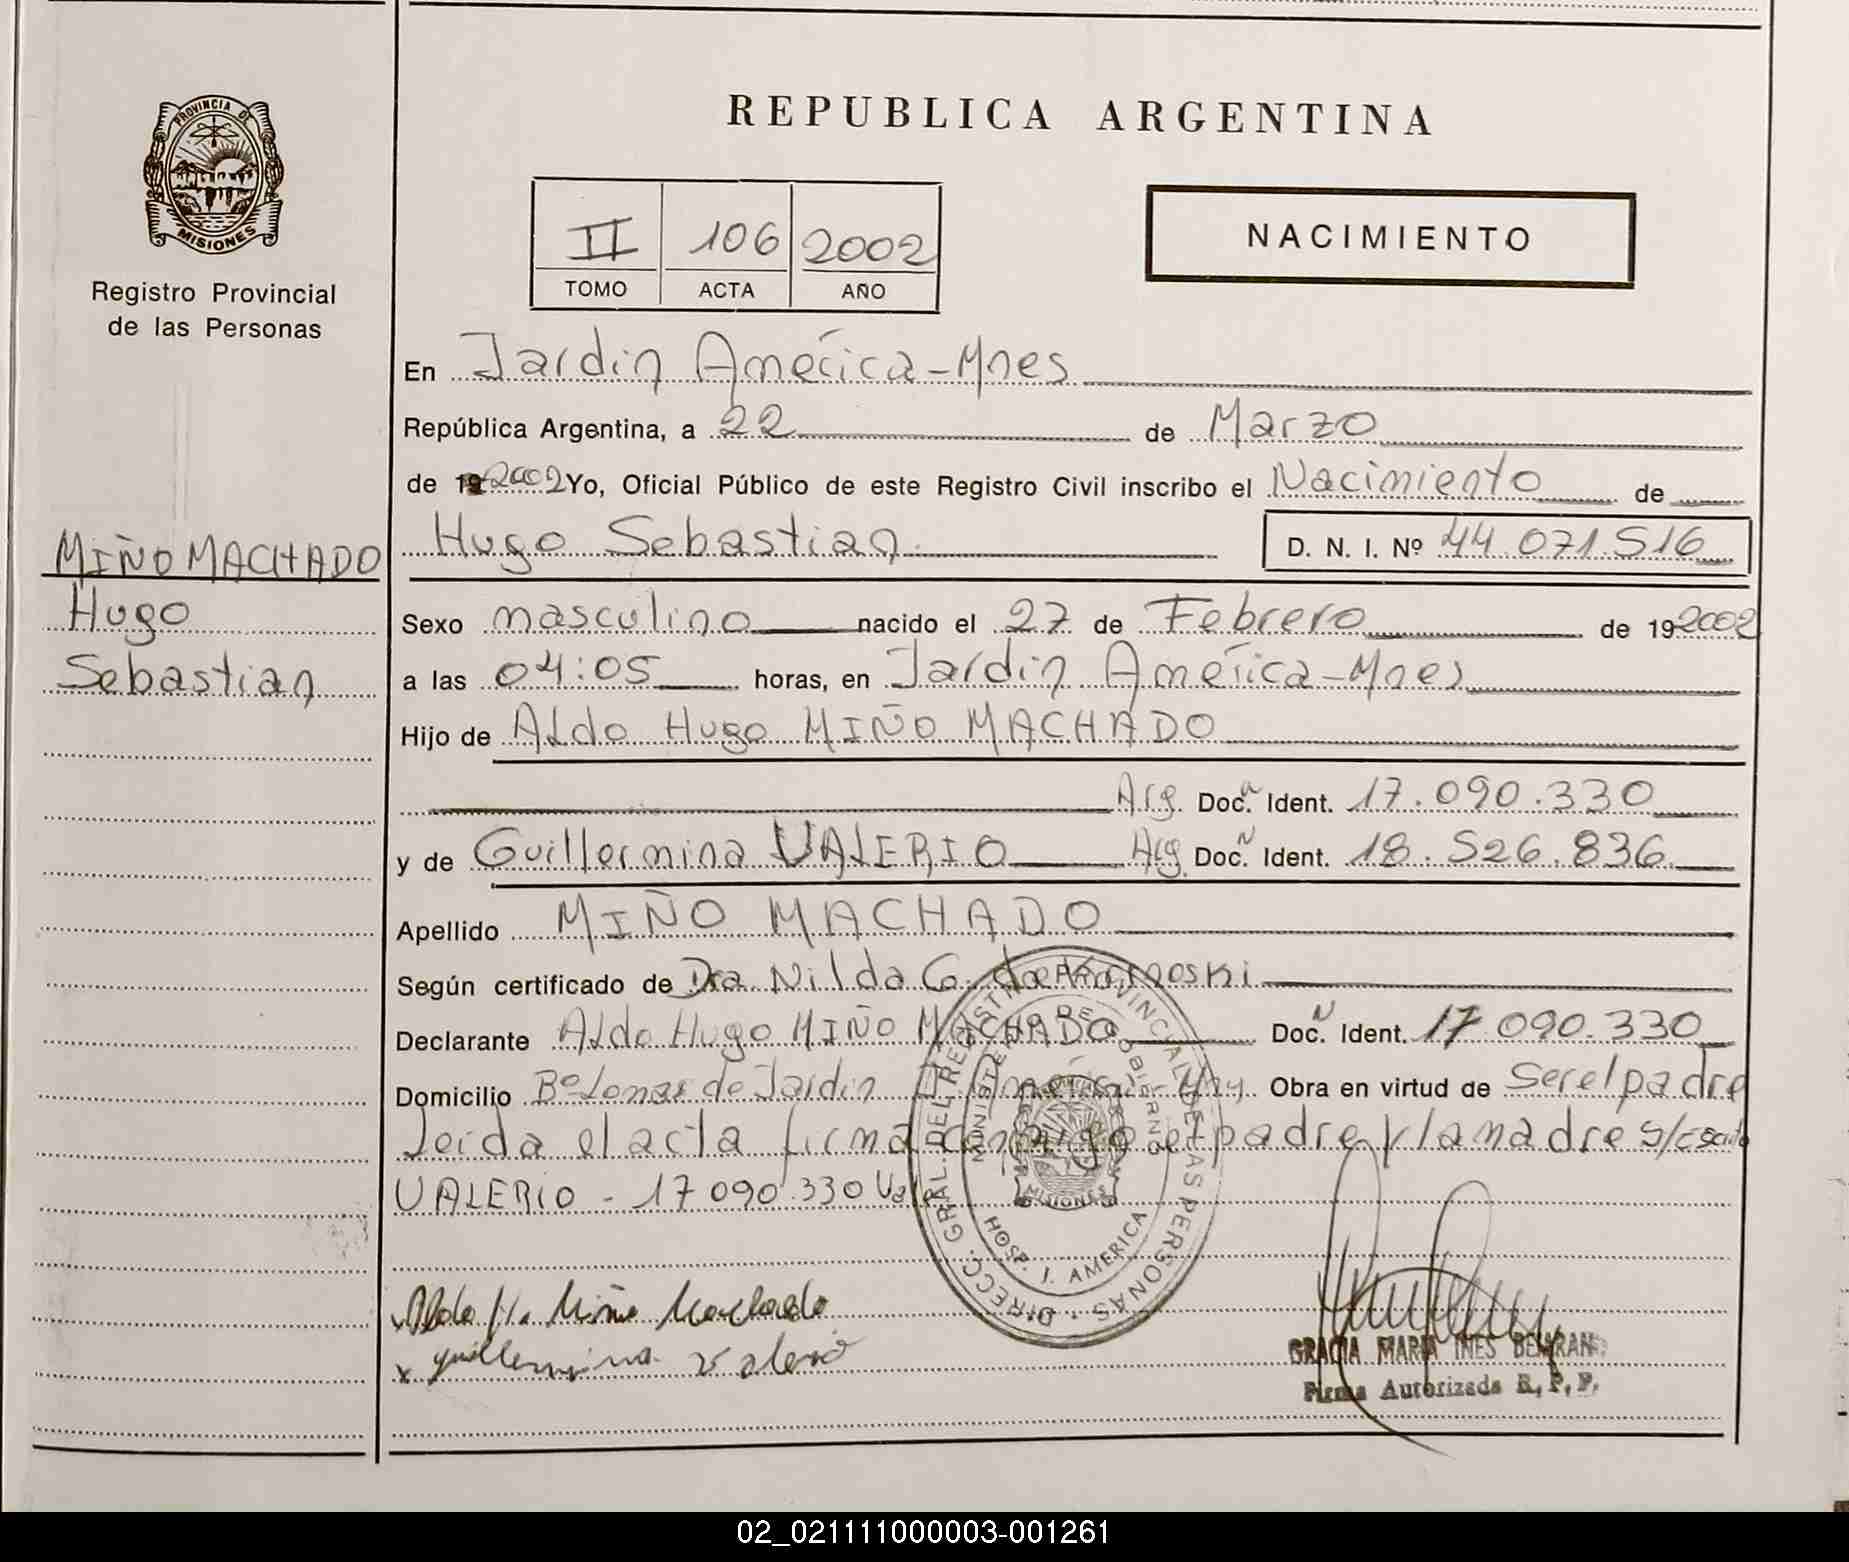 PROVINCIA DE
MISIONES
Registro Provincial
de las Personas
MIÑO MACHADO
Hugo
Sebastian
REPUBLICA ARGENTINA
II 106 2002
TOMO ACTA AÑO
NACIMIENTO
En Jardin América-Mnes
República Argentina, a 22 de Marzo
de 19 2002 Yo, Oficial Público de este Registro Civil inscribo el Nacimiento de
Hugo Sebastian. D. N. I. Nº 44.071.516
Sexo masculino nacido el 27 de Febrero de 19 2002
a las 04:05 horas, en Jardin América-Mnes
Hijo de Aldo Hugo MIÑO MACHADO
Arg. Doc. N Ident. 17.090.330
y de Guillermina VALERIO Arg Doc. N Ident. 18.526.836
Apellido MIÑO MACHADO
Según certificado de Dra Nilda G. de
Declarante Aldo Hugo MIÑO MACHADO Doc. N Ident. 17.090.330
Domicilio Bº Lomas de Jardin América Obra en virtud de Ser el padre
Leida el acta firma conmigo el padre y la madre s/c
VALERIO - 17090.330 Vale
DIRECC. GRAL. DEL REGISTRO PROVINCIAL DE LAS PERSONAS
MINISTERIO DE GOBIERNO
MISIONES
HOSP. J. AMERICA
x Aldo H. Miño Machado
x guillermina valerio
GRACIA MARIA INES
Firma Autorizada R. P. P.
02_021111000003-001261